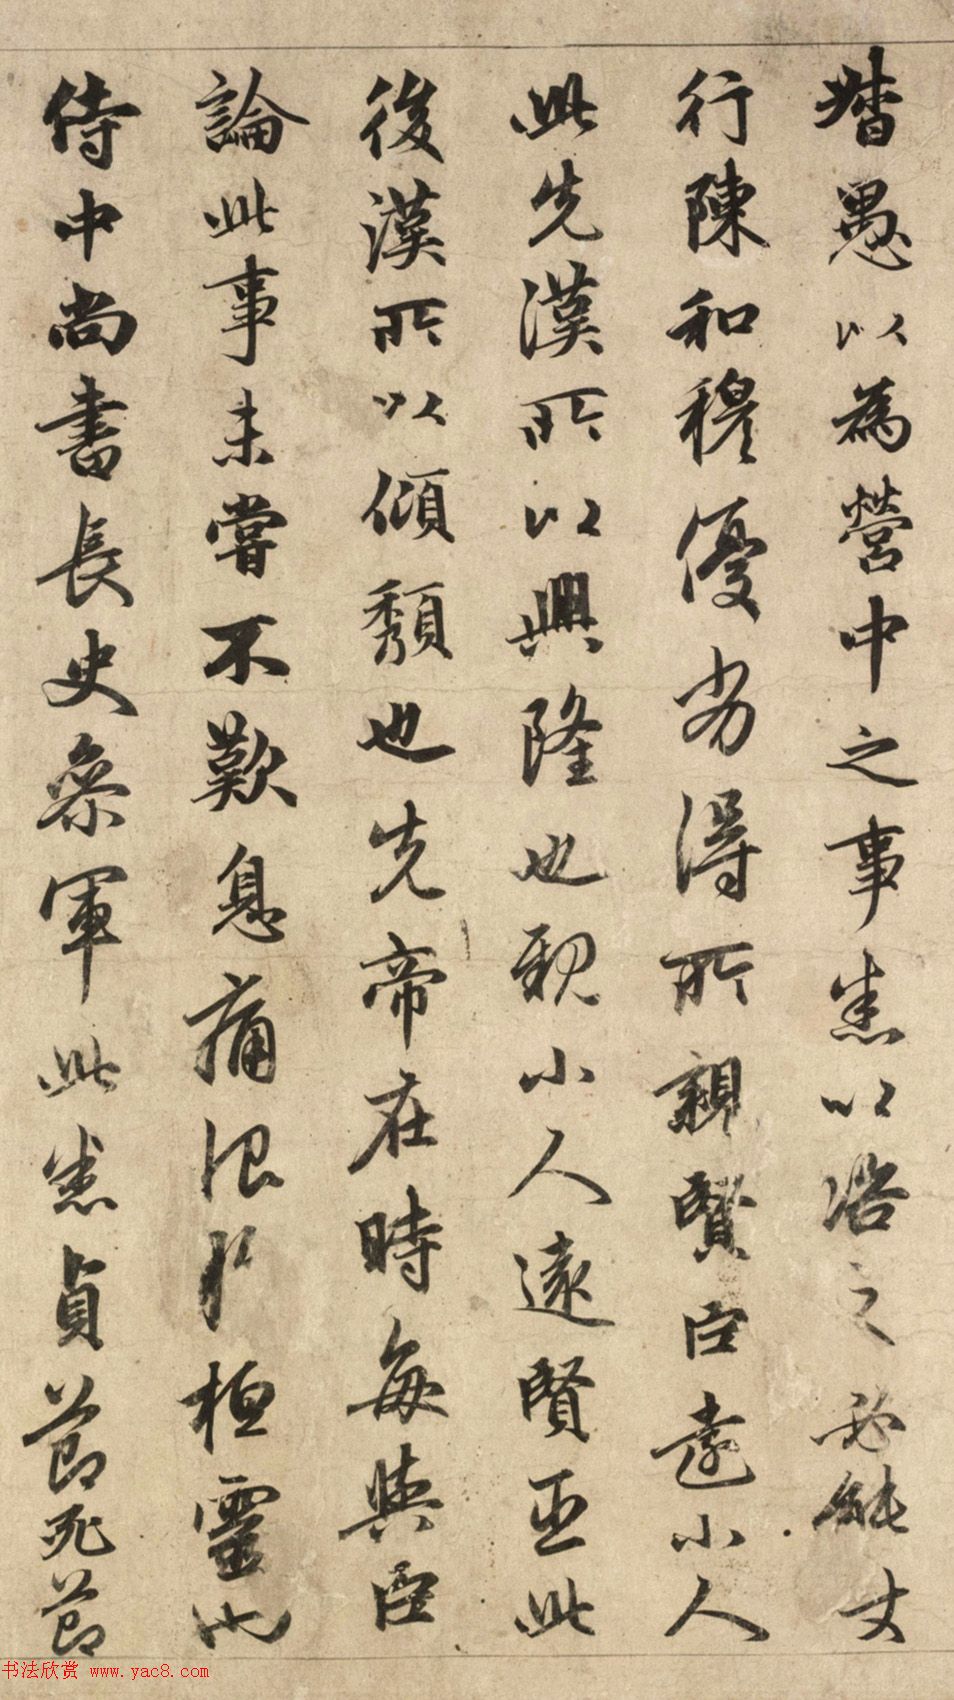 督愚以為營中之事悉以咨之必能使
行陳和穆優劣得所親賢臣遠小人
此先漢所以興隆也親小人遠賢臣此
後漢所以傾頹也先帝在時每與臣
論此事未嘗不歎息痛恨於桓靈也
侍中尚書長史參軍此悉貞節死節
书法欣赏 www.yac8.com